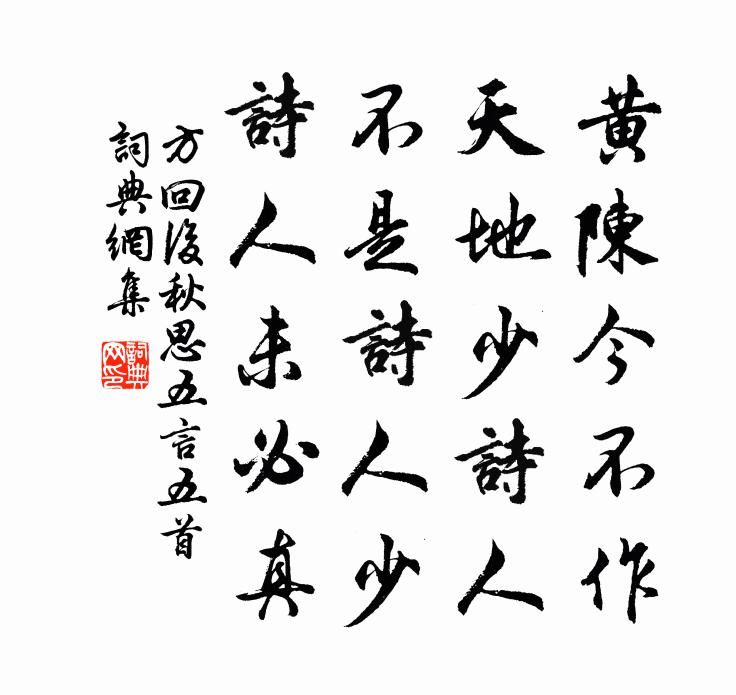 黃陳今不作
天地少詩人
不是詩人少
詩人未必真
方回後秋思五言五首
詞典網集
詞典
網印